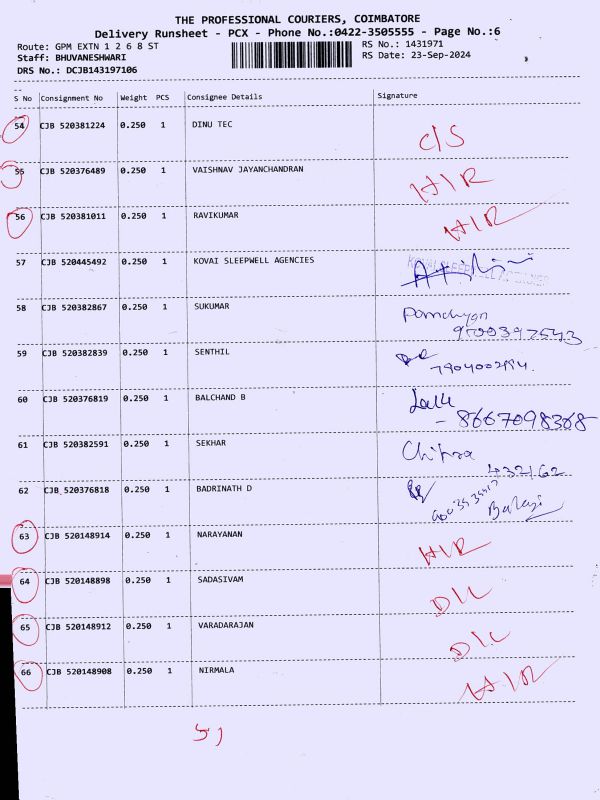 THE PROFESSIONAL COURIERS, COIMBATORE
Delivery Runsheet - PCX - Phone No.:0422-3505555 - Page No.:6
Route: GPM EXTN 1 2 6 8 ST RS No.: 1431971
Staff: BHUVANESHWARI RS Date: 23-Sep-2024
DRS No.: DCJB143197106
S No Consignment No Weight PCS Consignee Details Signature
54 CJB 520381224 0.250 1 DINU TEC C/S
55 CJB 520376489 0.250 1 VAISHNAV JAYANCHANDRAN H/R
56 CJB 520381011 0.250 1 RAVIKUMAR H/R
57 CJB 520445492 0.250 1 KOVAI SLEEPWELL AGENCIES
58 CJB 520382867 0.250 1 SUKUMAR
59 CJB 520382839 0.250 1 SENTHIL
60 CJB 520376819 0.250 1 BALCHAND B
- 8667098368
61 CJB 520382591 0.250 1 SEKHAR Chitra
62 CJB 520376818 0.250 1 BADRINATH D Balaji
63 CJB 520148914 0.250 1 NARAYANAN H/R
64 CJB 520148898 0.250 1 SADASIVAM D/L
65 CJB 520148912 0.250 1 VARADARAJAN D/L
66 CJB 520148908 0.250 1 NIRMALA H/R